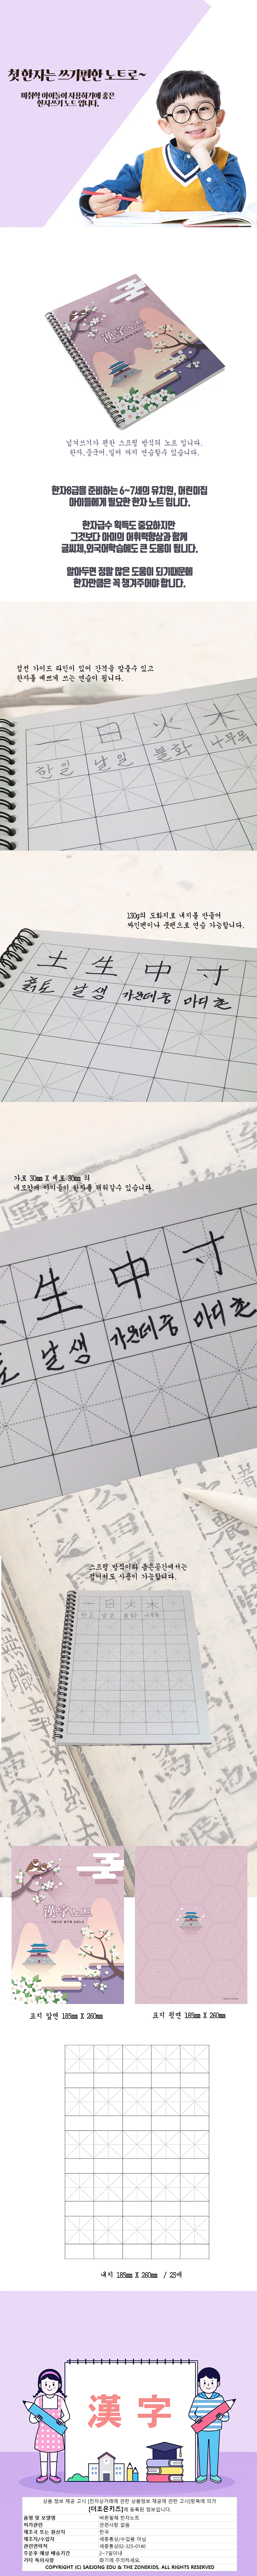 첫 한자는 쓰기편한 노트로~
미취학 아이들이 사용하기에 좋은
한자쓰기 노트 입니다.
漢字노트
넘겨쓰기가 편한 스프링 방식의 노트 입니다.
한자,중국어,일어 까지 연습할수 있습니다.
한자8급을 준비하는 6~7세의 유치원, 어린이집
아이들에게 필요한 한자 노트 입니다.
한자급수 획득도 중요하지만
그것보다 아이의 어휘력향상과 함께
글씨체,외국어학습에도 큰 도움이 됩니다.
알아두면 정말 많은 도움이 되기때문에
한자만큼은 꼭 챙겨주어야 합니다.
점선 가이드 라인이 있어 간격을 맞출수 있고
한자를 예쁘게 쓰는 연습이 됩니다.
一 日 火 木
한 일 날 일 불 화 나무 목
130g의 도화지로 내지를 만들어
싸인펜이나 붓펜으로 연습 가능합니다.
土 生 中 寸
흙 토 날 생 가운데 중 마디 촌
가로 30mm X 세로 30mm 의
네모칸에 아이들이 한자를 채워갈수 있습니다.
生 中 寸
토 날 생 가운데 중 마디 촌
스프링 방식이라 좁은공간에서는
접어서도 사용이 가능합니다.
一 日 火 木
한 일 날 일 불 화 나무 목
漢字노트
표지 앞면 185mm X 260mm
표지 뒷면 185mm X 260mm
내지 185mm X 260mm / 25매
漢 字
상품 정보 제공 고시 [전자상거래에 관한 상품정보 제공에 관한 고시]항목에 의거
[더조은키즈]에 등록된 정보입니다.
품명 및 모델명 바른필체 한자노트
허가관련 관련사항 없음
제조국 또는 원산지 한국
제조자/수입자 세종통상/수입품 아님
관련연락처 세종통상02-325-0140
주문후 예상 배송기간 2~7일이내
기타 특이사항 화기에 주의하세요.
COPYRIGHT (C) SAEJONG EDU & THE ZONEKIDS, ALL RIGHTS RESERVED